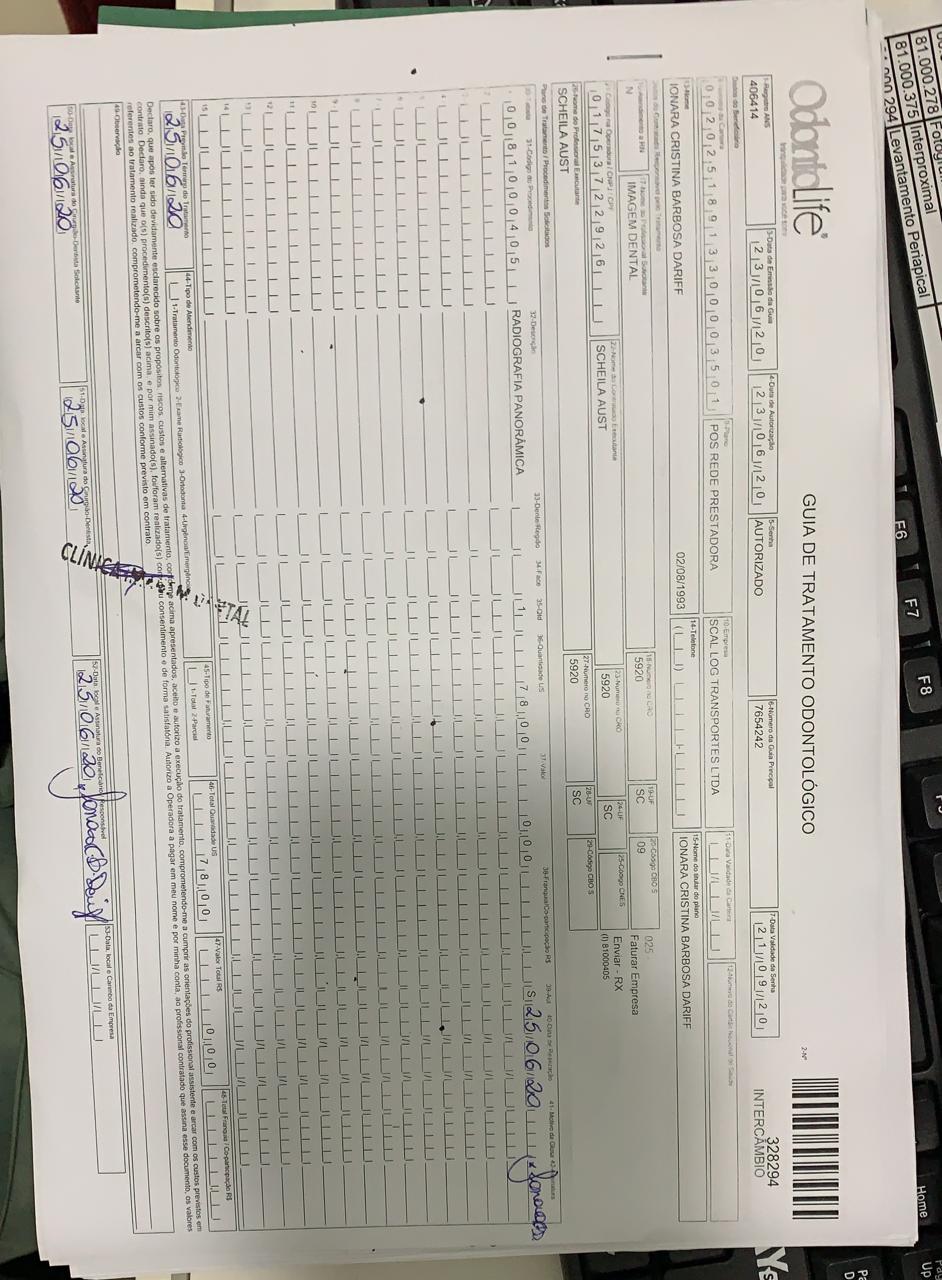 81.000.278 Fotogr
81.000.375 Interproximal
81.000.294 Levantamento Periapical
Odontolife®
GUIA DE TRATAMENTO ODONTOLÓGICO
2-Nº
328294
INTERCÂMBIO
1-Registro ANS
406414
3-Data de Emissão da Guia
23/06/20
4-Data de Autorização
23/06/20
5-Senha
AUTORIZADO
6-Número da Guia Principal
7654242
7-Data Validade da Senha
21/09/20
Dados do Beneficiário
00202518913300003501
9-Plano
POS REDE PRESTADORA
10-Empresa
SCAL LOG TRANSPORTES LTDA
11-Data Validade da Carteira
12-Número do Cartão Nacional de Saúde
13-Nome
IONARA CRISTINA BARBOSA DARIFF
02/08/1993
14-Telefone
15-Nome do titular do plano
IONARA CRISTINA BARBOSA DARIFF
Dados do Contratado Responsável pelo Tratamento
16-Atendimento a RN
N
17-Nome do Profissional Solicitante
IMAGEM DENTAL
18-Número no CRO
5920
19-UF
SC
20-Código CBO S
09
025 -
Faturar Empresa
21-Código na Operadora / CNPJ / CPF
01753722926
22-Nome do Contratado Executante
SCHEILA AUST
23-Número no CRO
5920
24-UF
SC
25-Código CNES
Enviar - RX
(I) 81000405
26-Nome do Profissional Executante
SCHEILA AUST
27-Número no CRO
5920
28-UF
SC
29-Código CBO S
Plano de Tratamento / Procedimentos Solicitados
30-Tabela 31-Código do Procedimento 32-Descrição 33-Dente/Região 34-Face 35-Qtd 36-Quantidade US 37-Valor 38-Franquia/Co-participação R$ 39-Aut 40-Data de Realização 41-Motivo da Glosa 42-Assinatura
00 81000405 RADIOGRAFIA PANORÂMICA 1 78,00 0,00 S 25/06/20
2
3
4
5
6
7
8
9
10
11
12
13
14
15
43-Data Previsão Término do Tratamento
25/06/20
44-Tipo de Atendimento
1-Tratamento Odontológico 2-Exame Radiológico 3-Ortodontia 4-Urgência/Emergência
45-Tipo de Faturamento
1-Total 2-Parcial
46-Total Quantidade US
78,00
47-Valor Total R$
0,00
48-Total Franquia / Co-participação R$
Declaro, que após ter sido devidamente esclarecido sobre os propósitos, riscos, custos e alternativas de tratamento, conforme acima apresentados, aceito e autorizo a execução do tratamento, comprometendo-me a cumprir as orientações do profissional assistente e arcar com os custos previstos em
contrato. Declaro, ainda que o(s) procedimento(s) descrito(s) acima, e por mim assinado(s), foi/foram realizado(s) com meu consentimento e de forma satisfatória. Autorizo a Operadora a pagar em meu nome e por minha conta, ao profissional contratado que assina esse documento, os valores
referentes ao tratamento realizado, comprometendo-me a arcar com os custos conforme previsto em contrato.
49-Observação
50-Data, local e Assinatura do Cirurgião-Dentista Solicitante
25/06/20
51-Data, local e Assinatura do Cirurgião-Dentista
25/06/20
52-Data, local e Assinatura do Beneficiário/Responsável
25/06/20
53-Data, local e Carimbo da Empresa
F6
F7
F8
Home